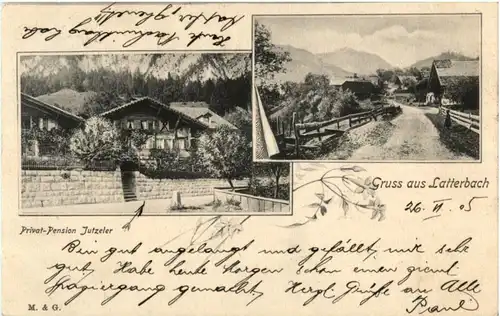 Gruss aus Latterbach
26. VI 05
Privat-Pension Jutzeler
Bin gut angelangt und gefällt mir sehr
gut, Habe heute Morgen schon einen
gemacht, Herzl. Grüße an Alle
Paul
M. & G.